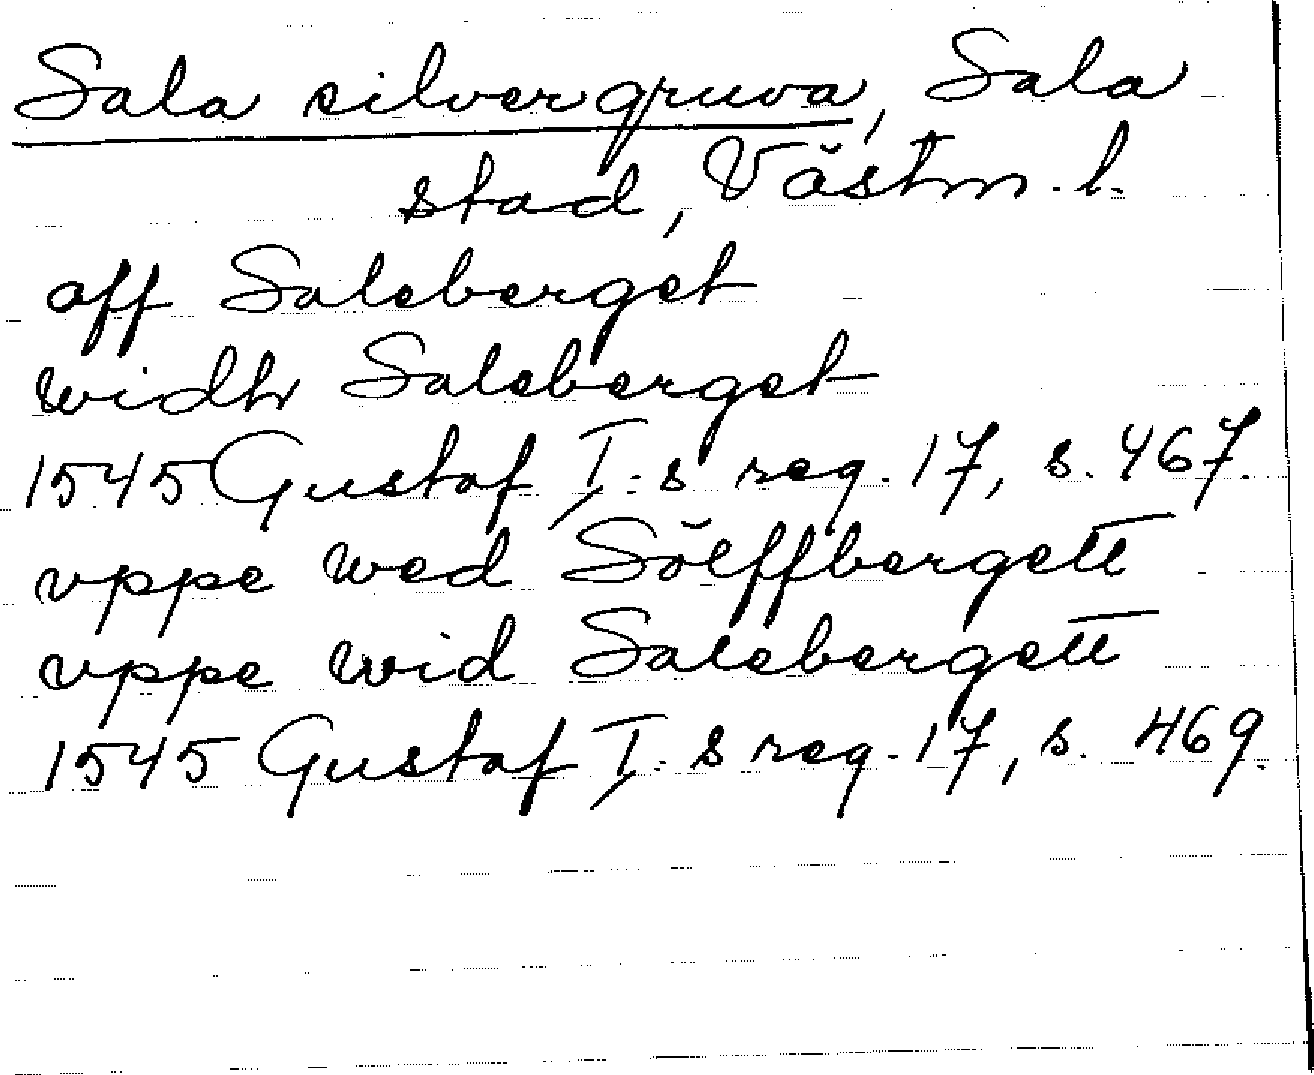 Sala silvergruva, Sala
stad, Västm. l.
aff Saleberget
widh Saleberget
1545 Gustaf I:s reg. 17, s. 467.
vppe wed Sölffbergett
vppe wid Salebergett
1545 Gustaf I:s reg. 17, s. 469.